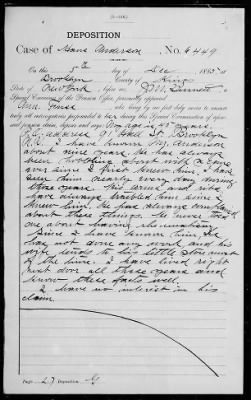 DEPOSITION
Case of Hans Anderson, No. 6449
On this 5th day of Dec 1885, at
Brooklyn County of Kings
State of New York, before me, J. M.
Special Examiner of the Pension Office, personally appeared
Mrs. who, being by me first duly sworn to answer
truly all interrogatories propounded to her during this Special Examination of aforesaid
pension claim, deposes and says: My age is years.
P.O. address 91 Hall St. Brooklyn
N.Y. I have known Mr. Anderson
about nine years. He has always
been about with a cane
ever since I first knew him. I have
seen him nearly every day during
those years. His arms and ribs
have always troubled him since I
knew him. He has always complained
about these things. He never told
me about having rheumatism.
Since I have known him, he
has not done any work and his
wife tends to his little store most
of the time. I have lived right
next door all these years and
know these facts well.
I have no interest in his
claim.
Page 27 Deposition G